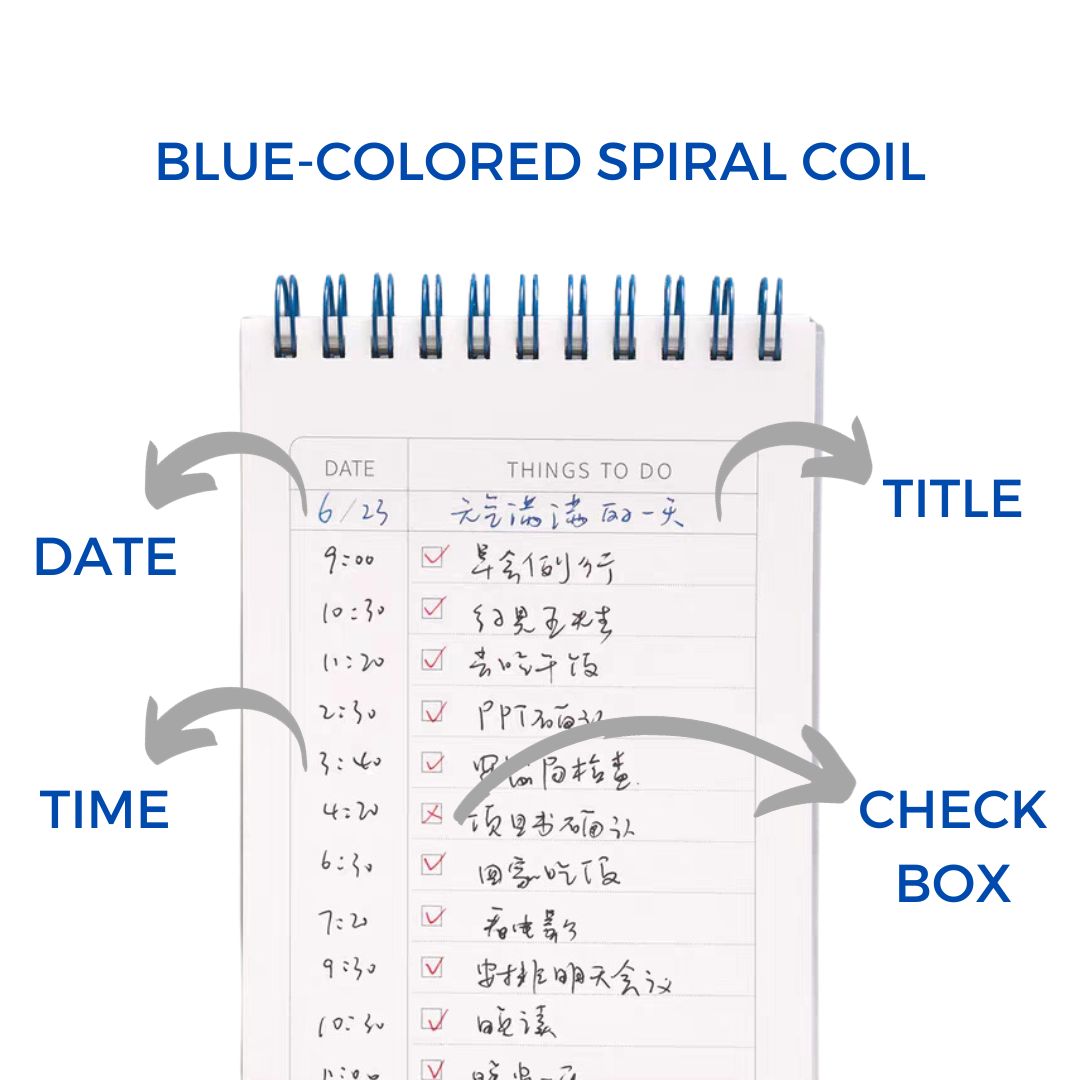 BLUE-COLORED SPIRAL COIL
DATE THINGS TO DO
6/23 元气满满的一天
TITLE
DATE
9:00 早会例行
10:30 约见王先生
11:20 去吃午饭
2:30 PPT确认
3:40 检查
TIME
4:20 项目书确认
CHECK
BOX
6:30 回家吃饭
7:20 看电影
9:30 安排明天会议
10:30
11:00